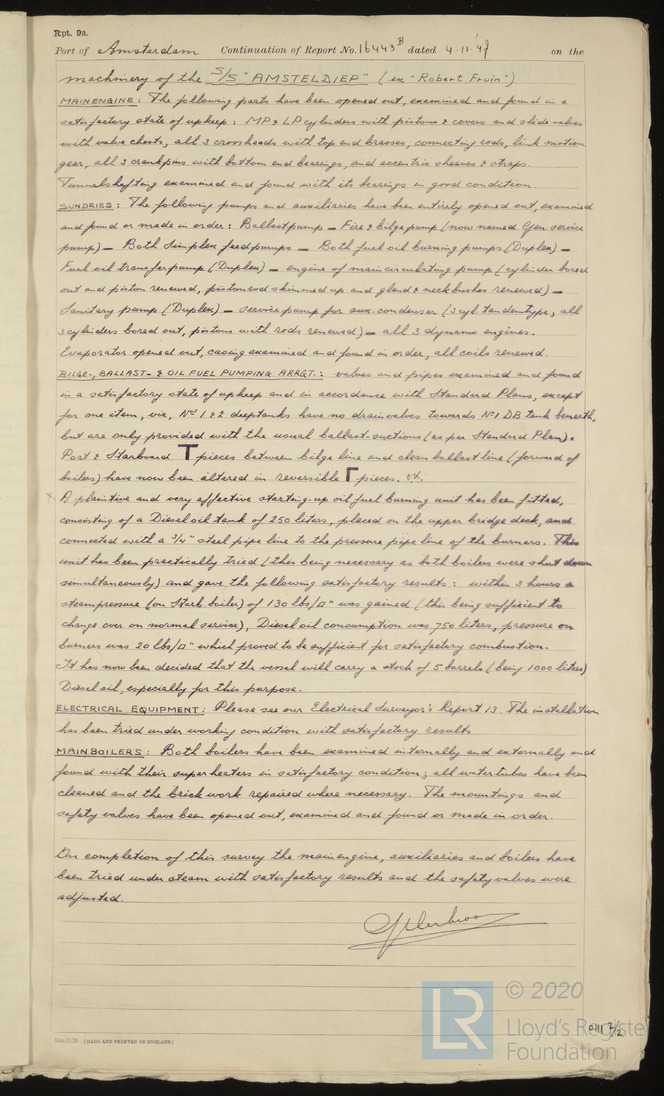 Rpt. 9a.
Port of Amsterdam Continuation of Report No. 16443B dated 4-11-'47 on the
machinery of the S/S "AMSTELDIEP" (ex "Robert Fruin")
MAIN ENGINE: The following parts have been opened out, examined and found in a
satisfactory state of upkeep: MP & LP cylinders with pistons & covers and slide valves
with valve chests, all 3 crossheads with top end brasses, connecting rods, link motion
gear, all 3 crankpins with bottom end bearings, and eccentric sheaves & straps.
Tunnelshafting examined and found with its bearings in good condition.
SUNDRIES: The following pumps and auxiliaries have been entirely opened out, examined
and found or made in order: Ballastpump – Fire & bilge pump (now named Gen. service
pump) – Both Simplex feedpumps – Both fuel oil burning pumps (Duplex) –
Fuel oil transferpump (Duplex) – engine of main circulating pump (cylinder bored
out and piston renewed, pistonrod skimmed up and gland & neckbushes renewed) –
Sanitary pump (Duplex) – service pump for aux. condenser (3 cyl. tandemtype, all
3 cylinders bored out, pistons with rods renewed) – all 3 dynamo engines.
Evaporator opened out, casing examined and found in order, all coils renewed.
BILGE-, BALLAST- & OIL FUEL PUMPING ARRGT.: valves and pipes examined and found
in a satisfactory state of upkeep and in accordance with Standard Plans, except
for one item, viz. Nos 1 & 2 deeptanks have no drainvalves towards No 1 DB tank beneath,
but are only provided with the usual ballast-suctions (as per Standard Plan).
Port & Starboard T pieces between bilge line and clean ballast line (forward of
boilers) have now been altered in reversible Γ pieces. ok
x A plaintive and very effective starting-up oil fuel burning unit has been fitted,
consisting of a Diesel oil tank of 250 liters, placed on the upper bridge deck, and
connected with a 3/4" steel pipe line to the pressure pipe line of the burners. This
unit has been practically tried (this being necessary as both boilers were shut down
simultaneously) and gave the following satisfactory results: within 3 hours a
steampressure (on Starb. boiler) of 130 lbs/□" was gained (this being sufficient to
change over on normal service), Diesel oil consumption was 750 liters, pressure on
burners was 20 lbs/□" which proved to be sufficient for satisfactory combustion.
It has now been decided that the vessel will carry a stock of 5 barrels (being 1000 liters)
Diesel oil, especially for this purpose.
ELECTRICAL EQUIPMENT: Please see our Electrical Surveyor's Report 13. The installation
has been tried under working condition with satisfactory results
MAINBOILERS: Both boilers have been examined internally and externally and
found with their superheaters in satisfactory condition; all watertubes have been
cleaned and the brickwork repaired where necessary. The mountings and
safety valves have been opened out, examined and found or made in order.
On completion of this survey the mainengine, auxiliaries and boilers have
been tried under steam with satisfactory results and the safety valves were
adjusted.
(MADE AND PRINTED IN ENGLAND)
LR © 2020
Lloyd's Register
Foundation